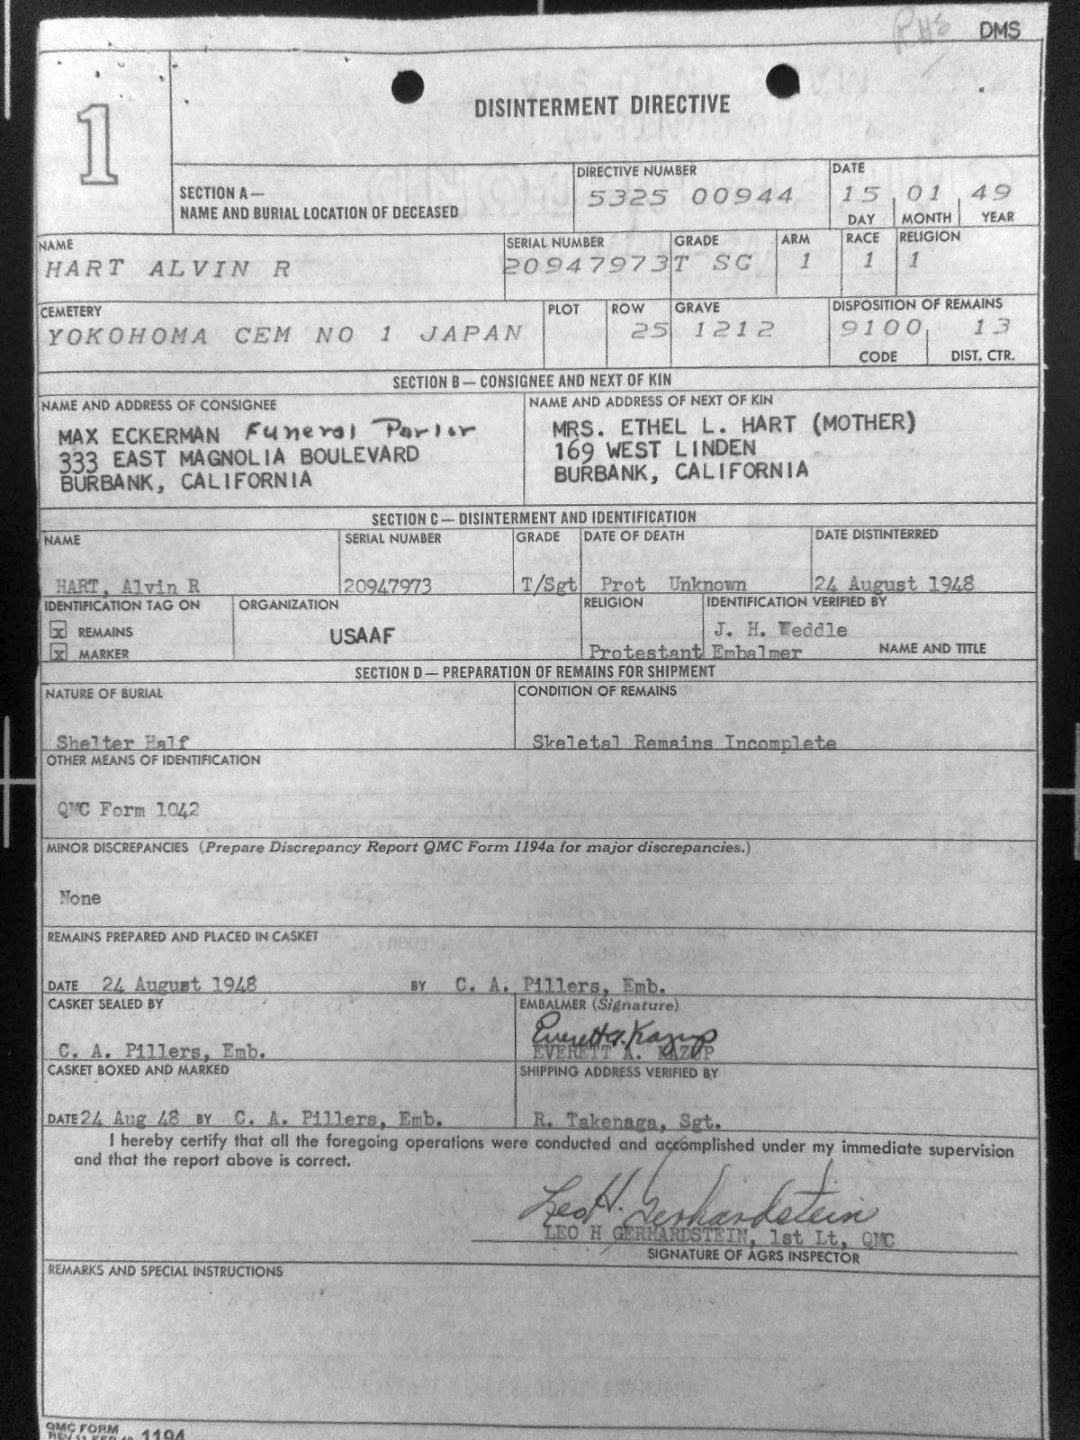 RHE DMS
1
DISINTERMENT DIRECTIVE
SECTION A—
NAME AND BURIAL LOCATION OF DECEASED
DIRECTIVE NUMBER
5325 00944
DATE
15 01 49
DAY MONTH YEAR
NAME
HART ALVIN R
SERIAL NUMBER
20947973
GRADE
T SG
ARM
1
RACE
1
RELIGION
1
CEMETERY
YOKOHOMA CEM NO 1 JAPAN
PLOT
ROW
25
GRAVE
1212
DISPOSITION OF REMAINS
9100 13
CODE DIST. CTR.
SECTION B — CONSIGNEE AND NEXT OF KIN
NAME AND ADDRESS OF CONSIGNEE
MAX ECKERMAN Funeral Parlor
333 EAST MAGNOLIA BOULEVARD
BURBANK, CALIFORNIA
NAME AND ADDRESS OF NEXT OF KIN
MRS. ETHEL L. HART (MOTHER)
169 WEST LINDEN
BURBANK, CALIFORNIA
SECTION C — DISINTERMENT AND IDENTIFICATION
NAME
HART, Alvin R
SERIAL NUMBER
20947973
GRADE
T/Sgt
DATE OF DEATH
Prot Unknown
DATE DISTINTERRED
24 August 1948
IDENTIFICATION TAG ON
x REMAINS
x MARKER
ORGANIZATION
USAAF
RELIGION
Protestant
IDENTIFICATION VERIFIED BY
J. H. Weddle
Embalmer NAME AND TITLE
SECTION D — PREPARATION OF REMAINS FOR SHIPMENT
NATURE OF BURIAL
Shelter Half
CONDITION OF REMAINS
Skeletal Remains Incomplete
OTHER MEANS OF IDENTIFICATION
QMC Form 1042
MINOR DISCREPANCIES (Prepare Discrepancy Report QMC Form 1194a for major discrepancies.)
None
REMAINS PREPARED AND PLACED IN CASKET
DATE 24 August 1948 BY C. A. Pillers, Emb.
CASKET SEALED BY
C. A. Pillers, Emb.
EMBALMER (Signature)
Everett A. Kazup
EVERETT A. KAZUP
CASKET BOXED AND MARKED
DATE 24 Aug 48 BY C. A. Pillers, Emb.
SHIPPING ADDRESS VERIFIED BY
R. Takenaga, Sgt.
I hereby certify that all the foregoing operations were conducted and accomplished under my immediate supervision
and that the report above is correct.
Leo H. Gerhardstein
LEO H GERHARDSTEIN, 1st Lt, QMC
SIGNATURE OF AGRS INSPECTOR
REMARKS AND SPECIAL INSTRUCTIONS
QMC FORM
1194